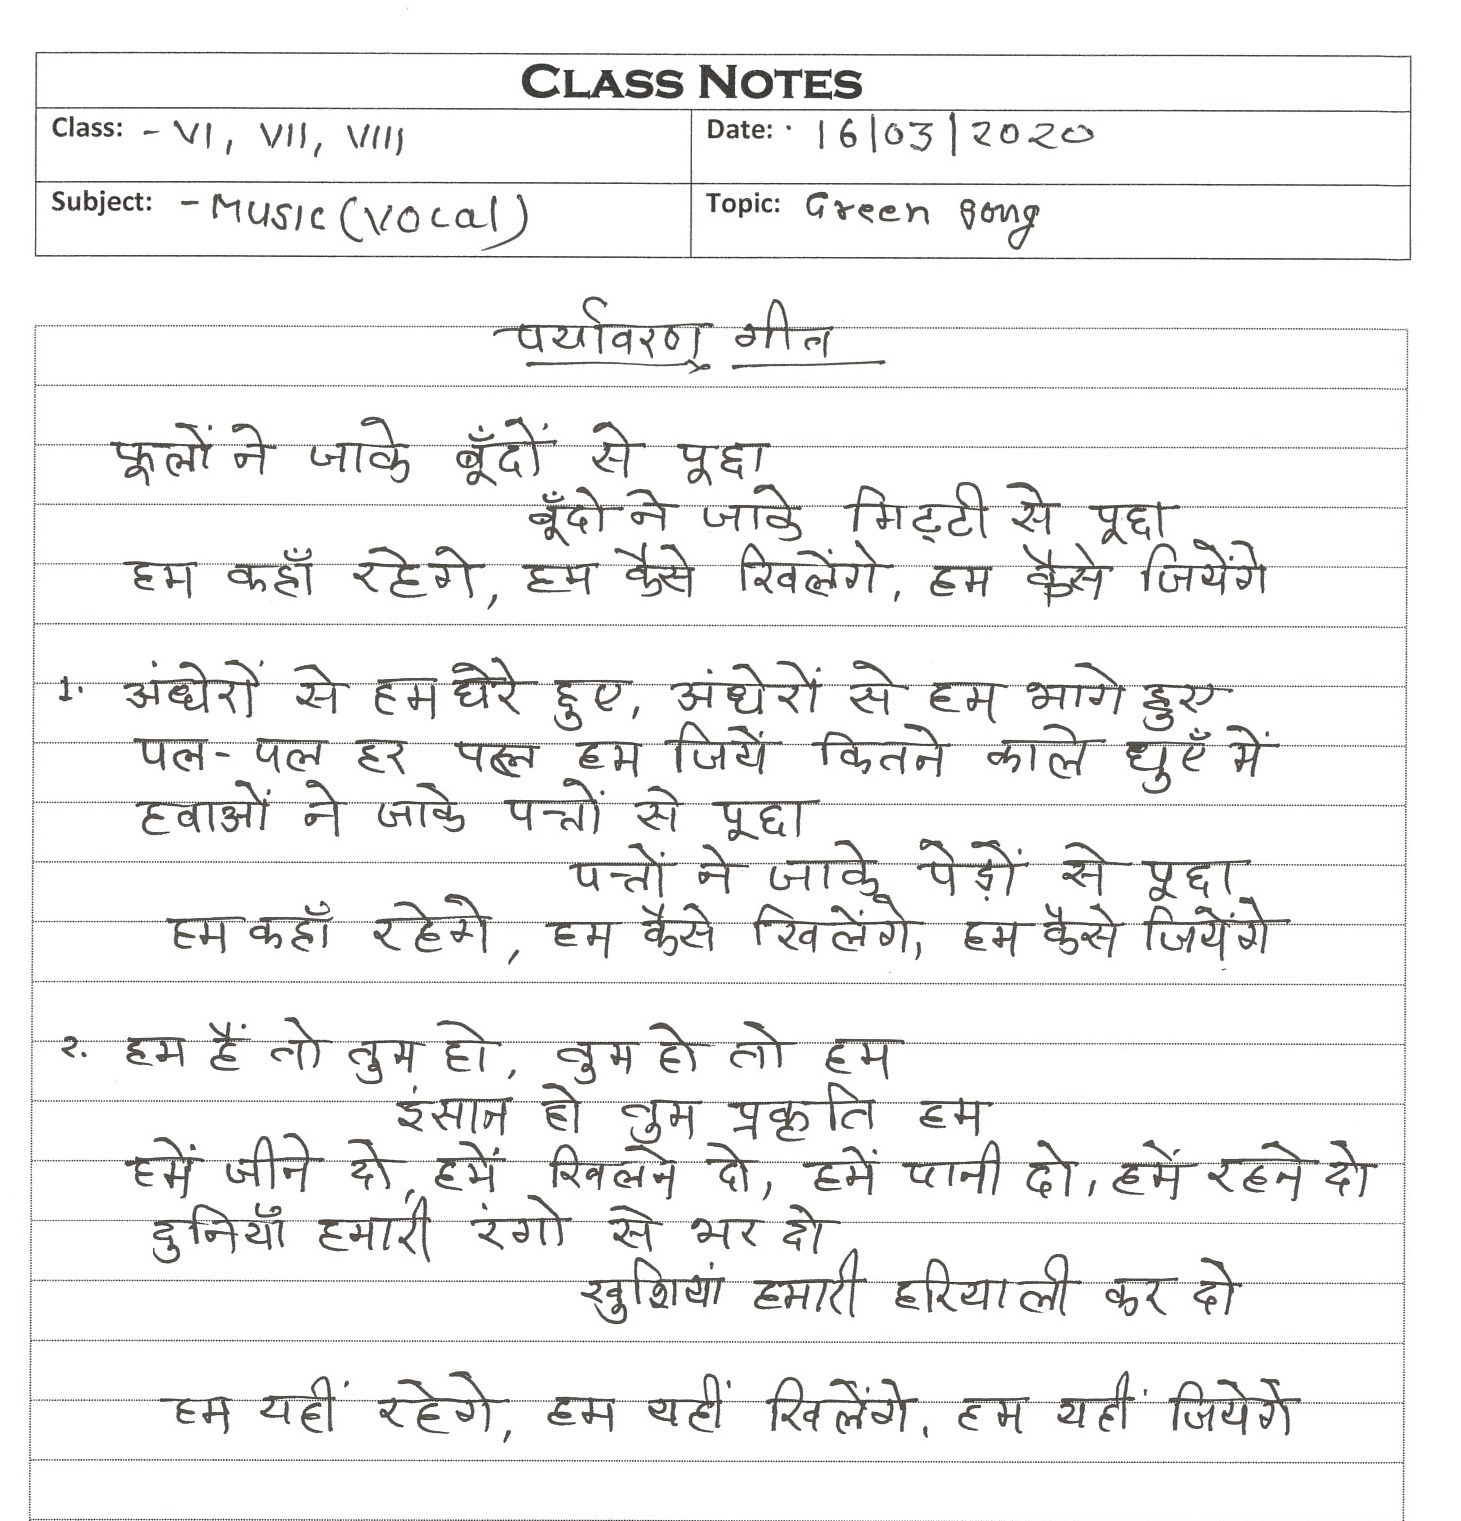 CLASS NOTES
Class: - VI, VII, VIII
Date: 16/03/2020
Subject: - Music (Vocal)
Topic: Green Song
पर्यावरण गीत
फूलों ने जाके बूँदों से पूछा
बूँदो ने जाके मिट्टी से पूछा
हम कहाँ रहेगे, हम कैसे खिलेंगे, हम कैसे जियेंगे
1. अंधेरों से हम घेरे हुए, अंधेरों से हम भागे हुए
पल-पल हर पल हम जियें कितने काले धुएँ में
हवाओं ने जाके पत्तों से पूछा
पत्तों ने जाके पेड़ों से पूछा
हम कहाँ रहेगे, हम कैसे खिलेंगे, हम कैसे जियेंगे
२. हम हैं तो तुम हो, तुम हो तो हम
इंसान हो तुम प्रकृति हम
हमें जीने दो, हमें खिलने दो, हमें पानी दो, हमें रहने दो
दुनियाँ हमारी रंगो से भर दो
खुशियां हमारी हरियाली कर दो
हम यहीं रहेगे, हम यहीं खिलेंगे, हम यहीं जियेगे